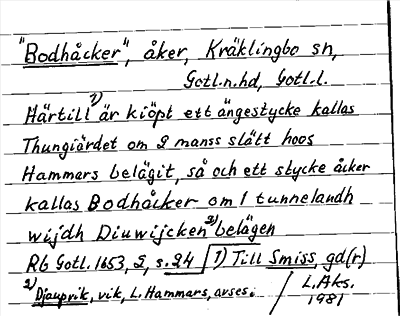 "Bodhåcker", åker, Kräklingbo sn,
Gotl.n.hd, Gotl.l.
Härtill 1) är kiöpt ett ängestycke kallas
Thungiärdet om 2 manss slätt hoos
Hammars belägit, så och ett stycke åcker
kallas Bodhåcker om 1 tunnelandh
wijdh Diuwijcken 2) belägen
Rb Gotl. 1653, 2, s. 24 1) Till Smiss, gd(r)
2) Djaupvik, vik, L. Hammars, avses. L. Aks.
1981